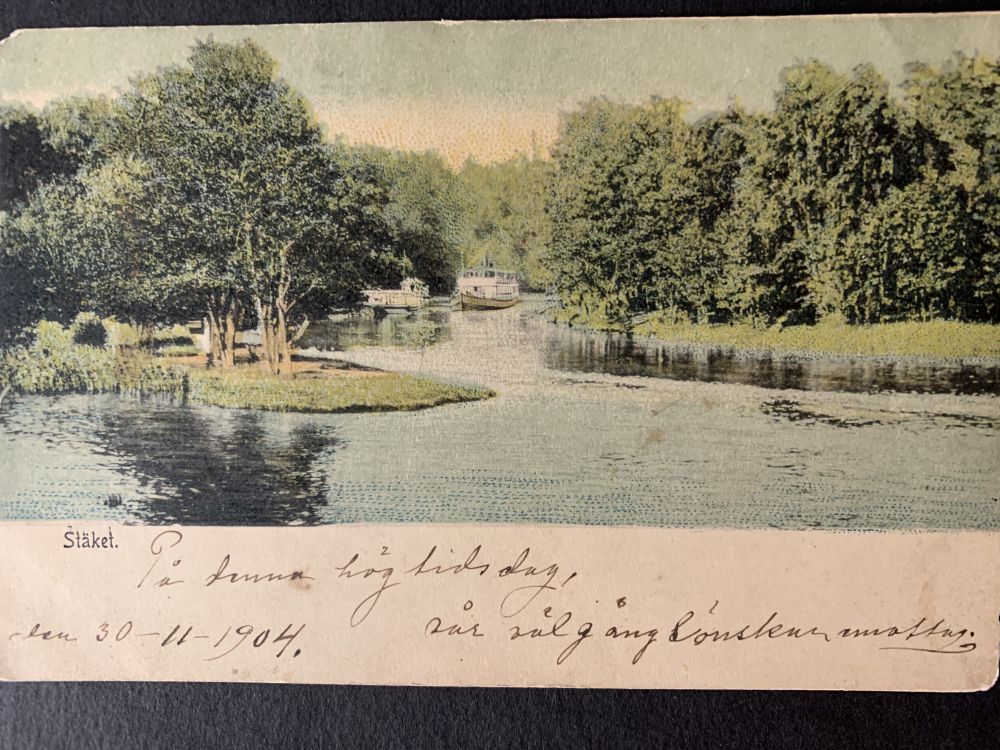 Stäket.
På denna högtidsdag,
den 30-11-1904.
vår välgångsönskan mottag.